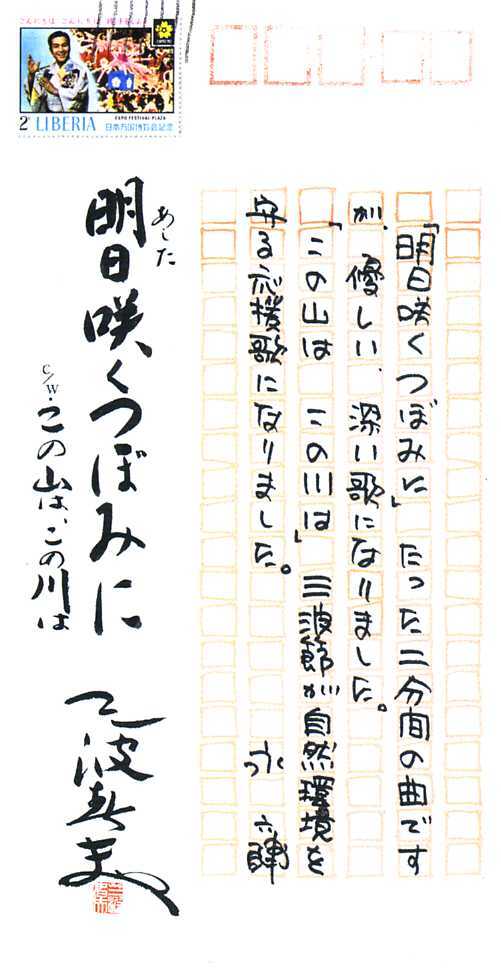 こんにちは こんにちは
2c LIBERIA
EXPO FESTIVAL PLAZA
日本万国博覧会記念
「明日咲くつぼみに」 たった二分間の曲です
が、優しい、深い歌になりました。
「この山は この川は」 三波節が自然環境を
守る応援歌になりました。 永 六輔
あした
明日咲くつぼみに
C/W・この山は、この川は
三波春夫